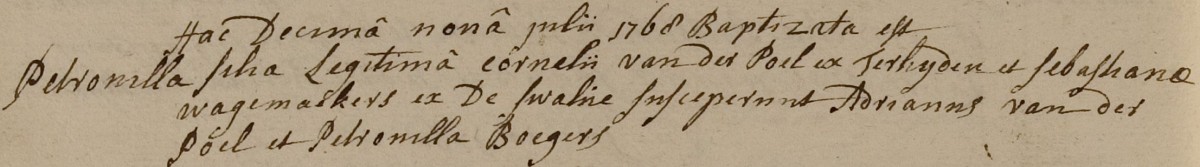 Hac Decimâ nonâ julii 1768 Baptizata est
Petronilla filia Legitimâ cornelii van der Poel ex Terhyden et sebastianæ
wagemackers ex De swalue susceperunt Adrianus van der
Poel et Petronilla Boegers